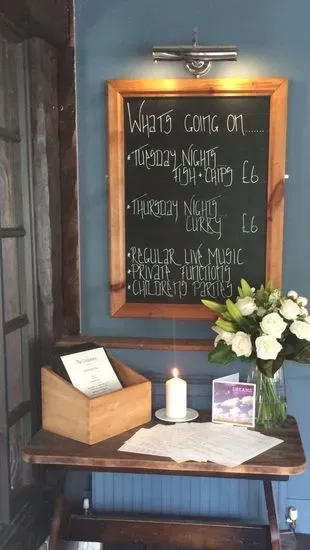 WHATS GOING ON.......
• TUESDAY NIGHTS
FISH + CHIPS £6
• THURSDAY NIGHTS
CURRY £6
• REGULAR LIVE MUSIC
• PRIVATE FUNCTIONS
• CHILDRENS PARTIES
DREAMS